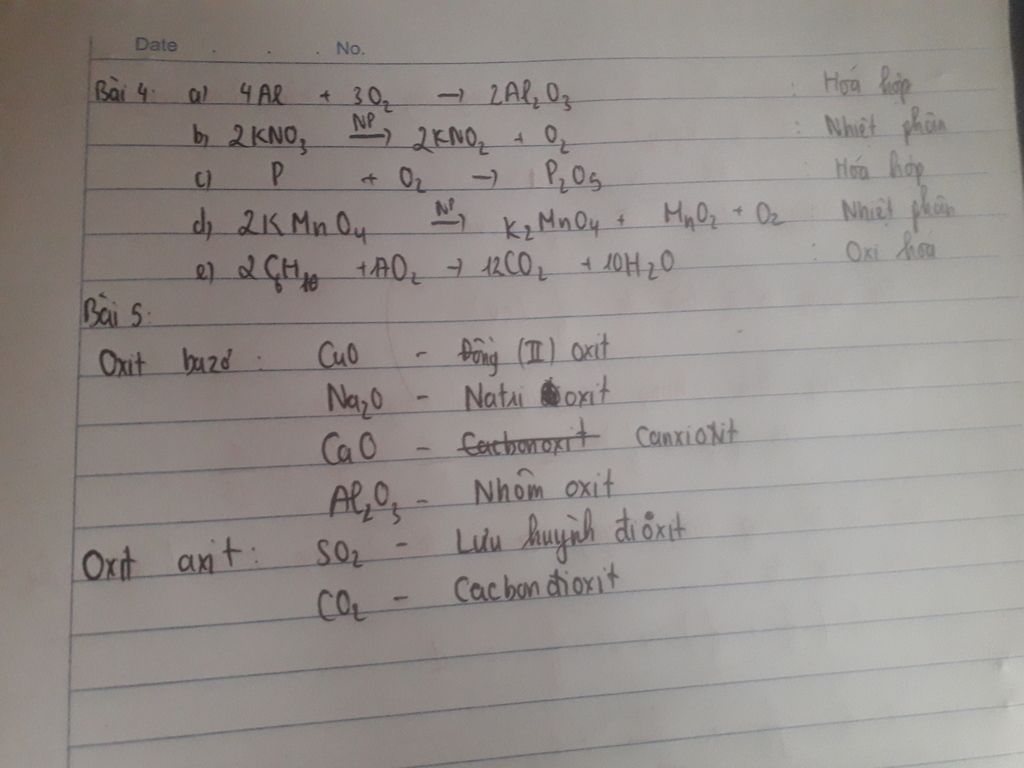 Date . . . No.
Bài 4: a) 4Al + 3O₂ → 2Al₂O₃ : Hoá hợp
b) 2KNO₃ NP→ 2KNO₂ + O₂ : Nhiệt phân
c) P + O₂ → P₂O₅ Hoá hợp
d) 2KMnO₄ NP→ K₂MnO₄ + MnO₂ + O₂ Nhiệt phân
e) 2 + AO₂ → 12CO₂ + 10H₂O : Oxi hoá
Bài 5:
Oxit bazơ: CuO - Đồng (II) oxit
Na₂O - Natri oxit
CaO - Cacbonoxit Canxioxit
Al₂O₃ - Nhôm oxit
Oxit axit: SO₂ - Lưu huỳnh đioxit
CO₂ - Cacbon đioxit